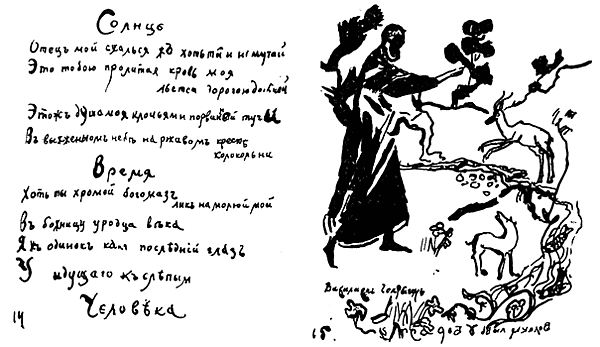 Солнце
Отецъ мой сжалься хоть ты и не мучай
Это тобою пролитая кровь моя
льется дорогою дольней
Этожъ душа моя клочьями порваной тучи
Въ выжженномъ небѣ на ржавомъ крестѣ
колокольни
Время
Хоть ты хромой богомазъ
ликъ намолюй мой
въ божницу уродца вѣка
Я одинокъ как послѣднiй глазъ
У идущаго къ слѣпым
Человѣка
14
Чекрыгинъ
15